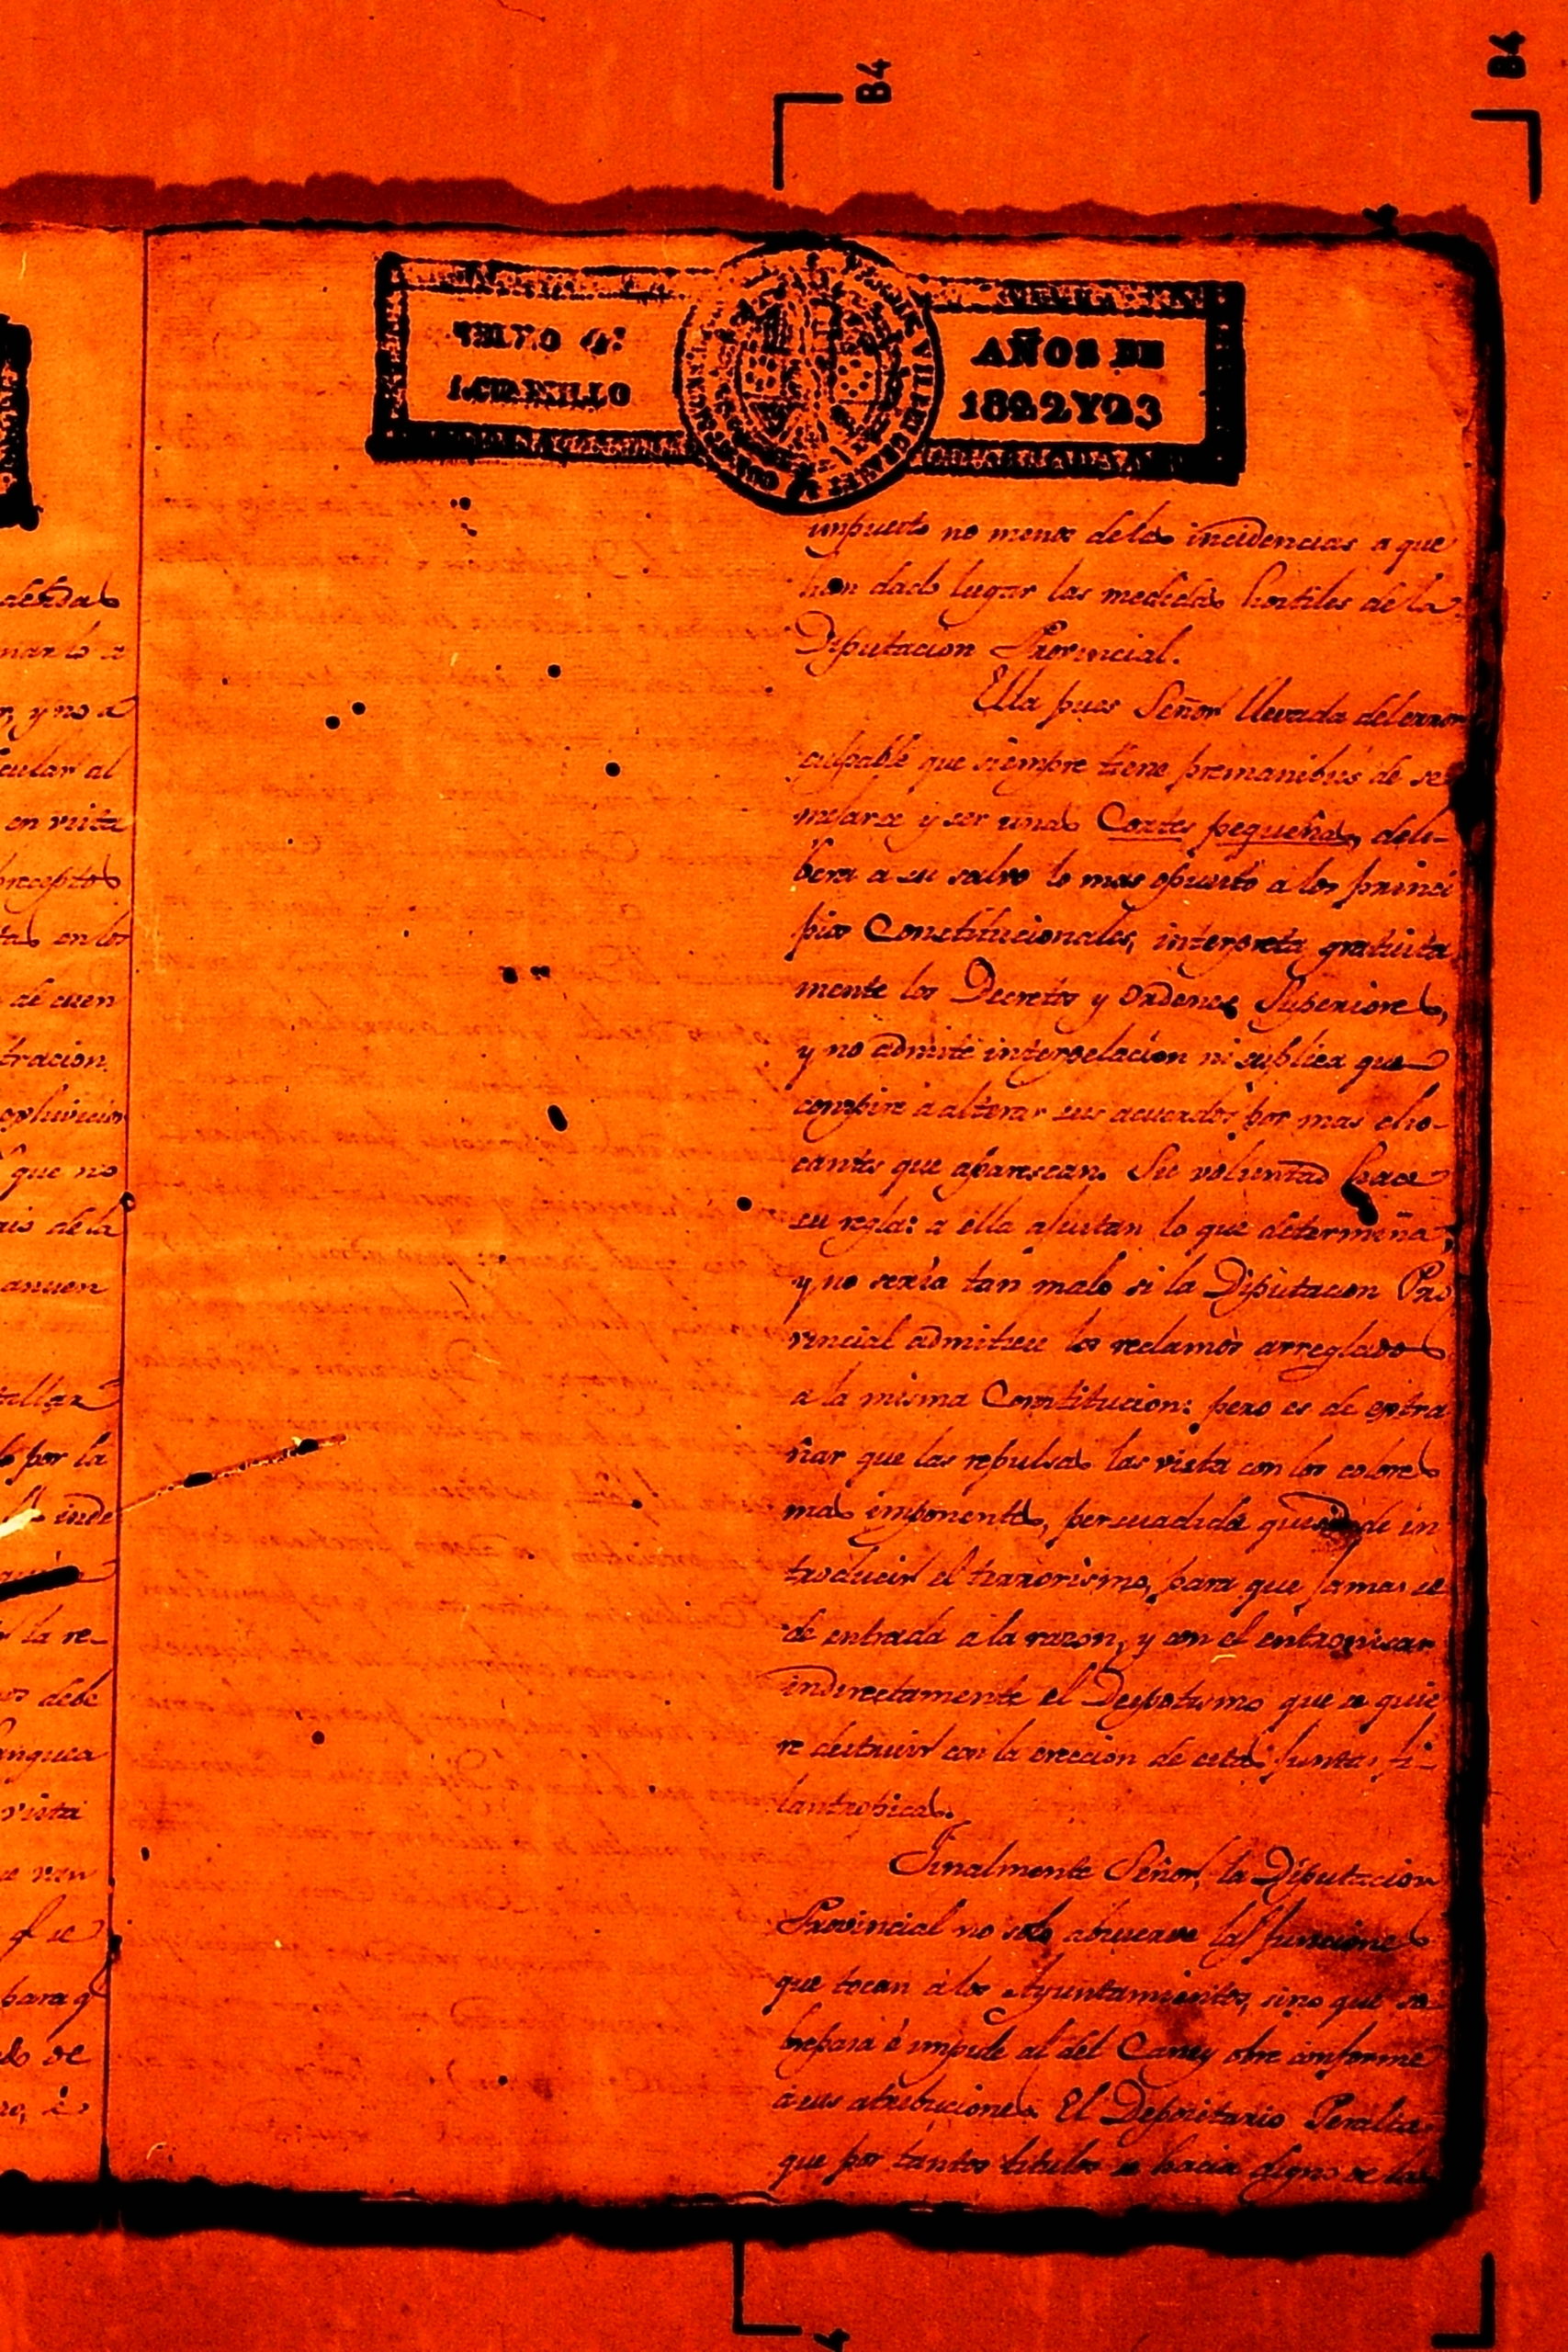 B4
B4
SELLO 4º
1.CUARTILLO
AÑOS DE
1822Y23
impuesto no menos delas incidencias a que
han dado lugar las medidas hostiles de la
Diputacion Provincial.
Ella pues Señor llevada del error
culpable que siempre tiene premanibus de se
mejarse y ser unas Cortes pequeñas, deli-
bera a su salvo lo mas opuesto a los princi
pios Constitucionales, interpreta gratuita
mente los Decretos y Ordenes Superiores,
y no admite interpelacion ni suplica que
conspire a alterar sus acuerdos por mas cho-
cantes que aparescan. Su voluntad hace
su regla: a ella ajustan lo que determina;
y no seria tan malo si la Diputacion Pro
vincial admitiese los reclamos arreglados
a la misma Constitucion: pero es de extra
ñar que las repulsas las vista con los colores
mas imponentes, persuadida que de in
troducir el terrorismo, para que jamas se
de entrada a la razon, y con el entronisar
indirectamente el Despotismo que se quie
re destruir con la ereccion de estas Juntas fi-
lantropicas.
Finalmente Señor, la Diputacion
Provincial no solo abrueave las funciones
que tocan a los Ayuntamientos, sino que so
brepasa é impide al del Caney obre conforme
á sus atribuciones. El Depositario Peralta
que por tantos titulos se hacia digno de la
debidas
marlo a
r, y no a
cular al
en vista
precepto
tas en los
de cuen
tracion
que no
ais de la
anuen
tallar
lo por la
inde
la re-
os debe
vista
se ven
q.e se
para q.e
do de
ro, é